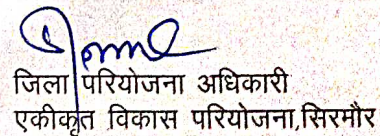 जिला परियोजना अधिकारी
एकीकृत विकास परियोजना,सिरमौर